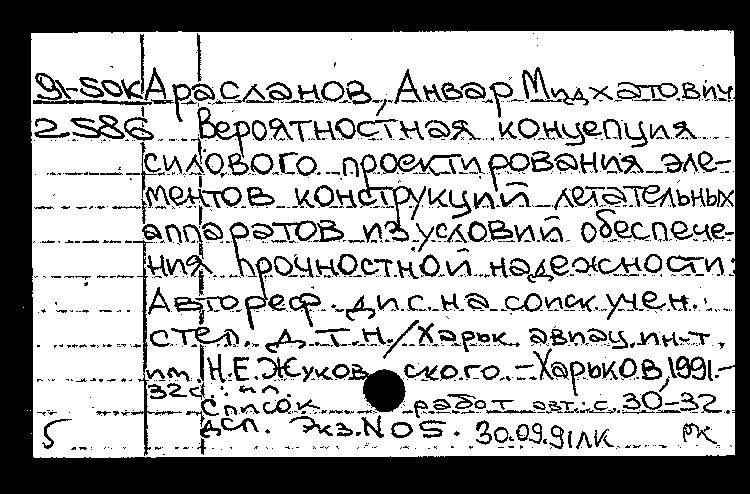 91-50к Арасланов, Анвар Мидхатович
2586 Вероятностная концепция
силового проектирования эле-
ментов конструкций летательных
аппаратов из условий обеспече-
ния прочностной надежности:
Автореф. дис. на соиск. учен.
степ. д.т.н./Харьк. авиац. ин-т.
им. Н.Е. Жуковского. - Харьков, 1991.-
32с.: ил
Список работ авт.: с. 30-32
5 дсп. Экз. № 05. 30.09.91 ЛК